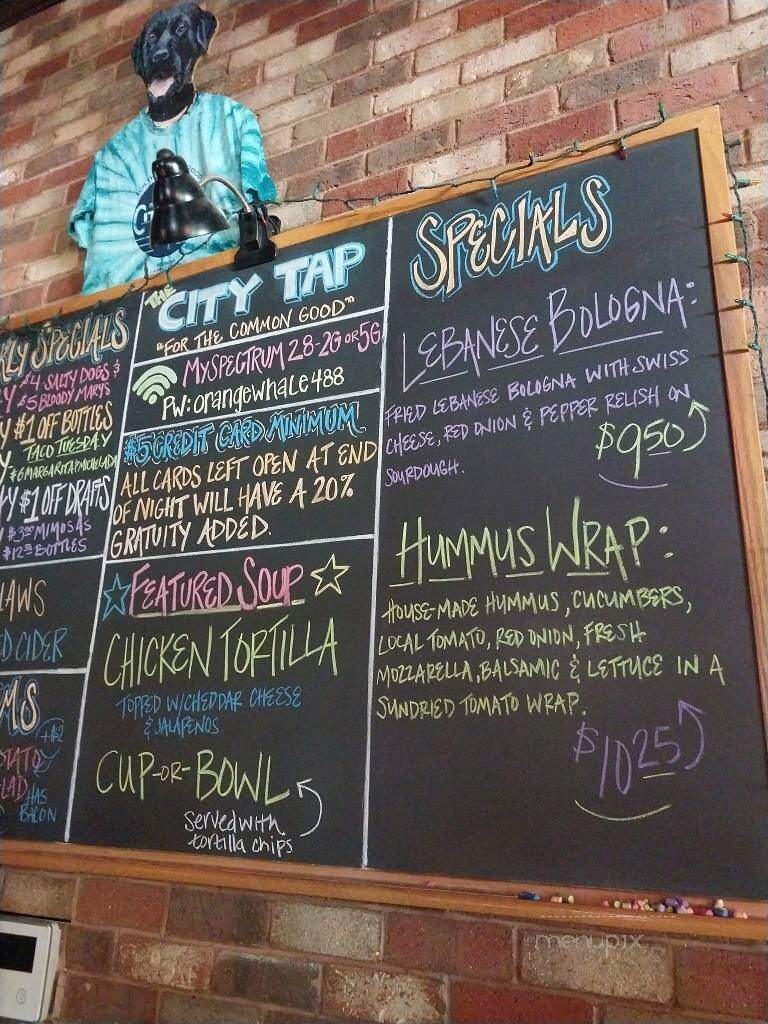 SPECIALS
$4 SALTY DOGS &
$5 BLOODY MARYS
$1 OFF BOTTLES
TACO TUESDAY
$1 OFF DRAFTS
$3.00 MIMOSAS
$12.00 BOTTLES
CIDER
HAS
BACON
THE CITY TAP
"FOR THE COMMON GOOD"
MYSPECTRUM 28-2G OR 5G
PW: orangewhale488
$5 CREDIT CARD MINIMUM
ALL CARDS LEFT OPEN AT END
OF NIGHT WILL HAVE A 20%
GRATUITY ADDED.
FEATURED SOUP
CHICKEN TORTILLA
TOPPED W/CHEDDAR CHEESE
& JALAPENOS
CUP-OR-BOWL
served with
tortilla chips
SPECIALS
LEBANESE BOLOGNA:
FRIED LEBANESE BOLOGNA WITH SWISS
CHEESE, RED ONION & PEPPER RELISH ON
SOURDOUGH.
$9.50
HUMMUS WRAP:
HOUSE-MADE HUMMUS, CUCUMBERS,
LOCAL TOMATO, RED ONION, FRESH
MOZZARELLA, BALSAMIC & LETTUCE IN A
SUNDRIED TOMATO WRAP.
$10.25
menupix